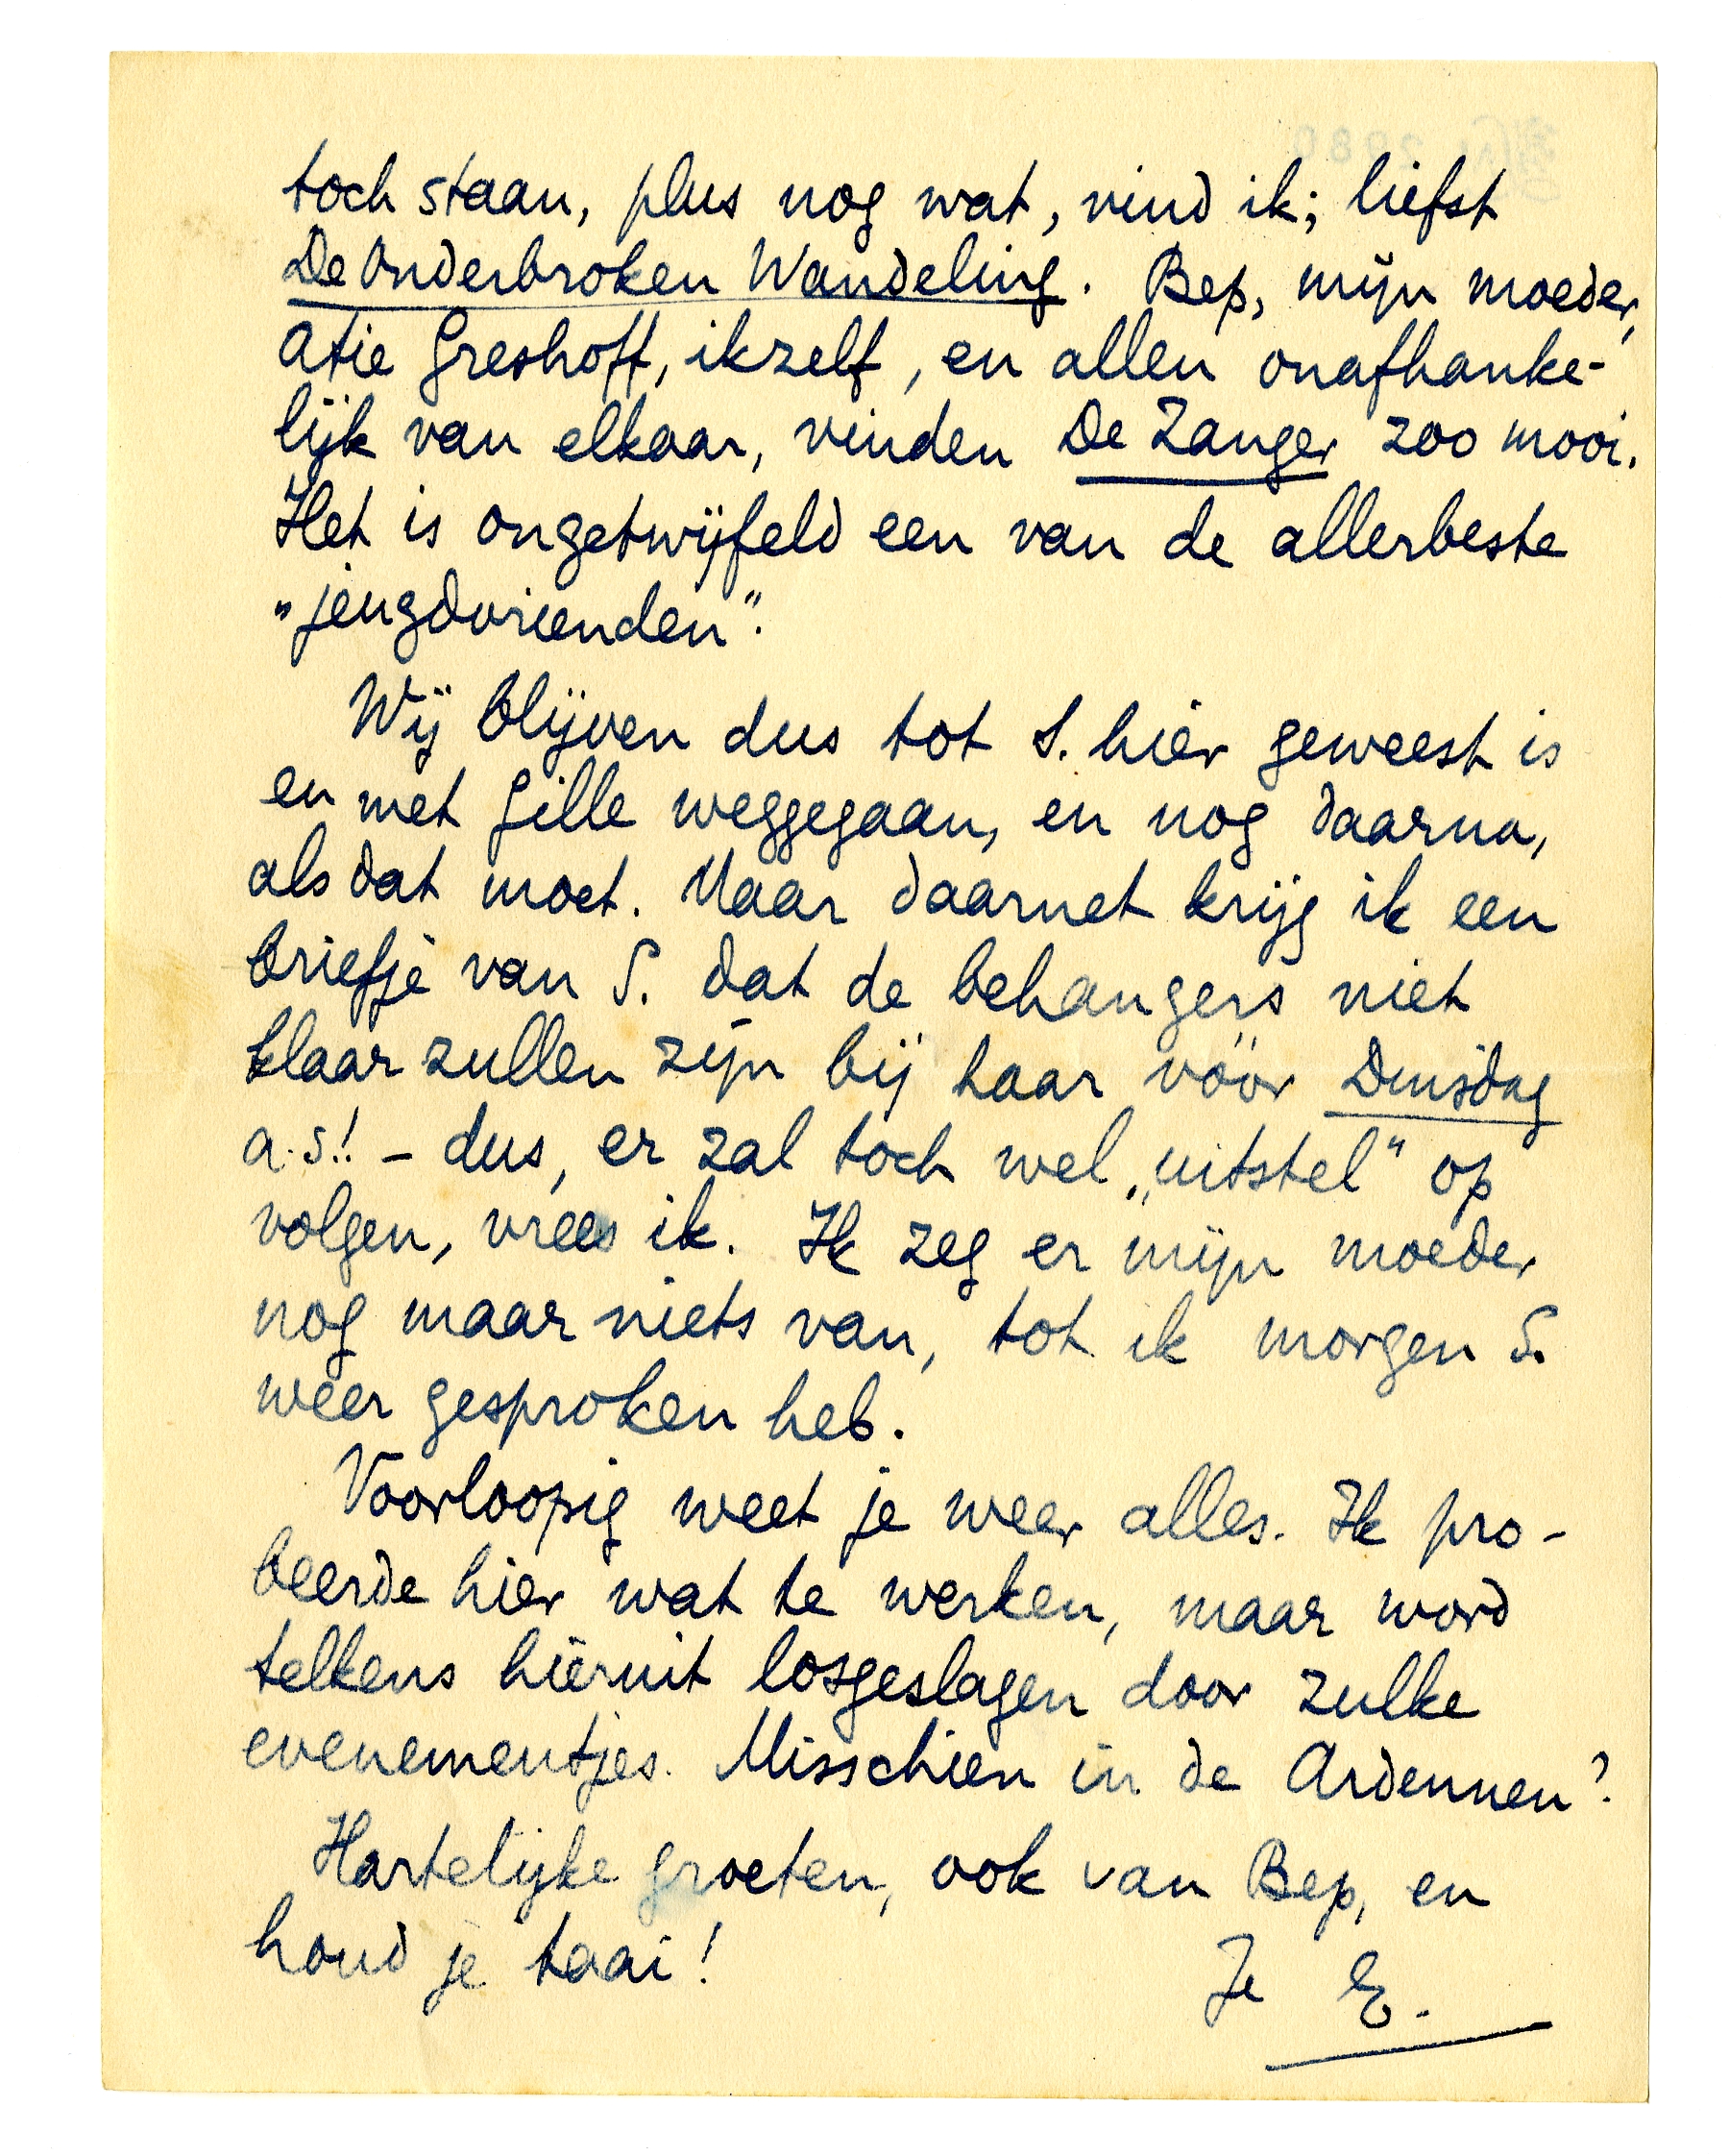 toch staan, plus nog wat, vind ik; liefst
De Onderbroken Wandeling. Bep, mijn moeder,
Atie Greshoff, ikzelf, en allen onafhanke-
lijk van elkaar, vinden De Zanger zoo mooi.
Het is ongetwijfeld een van de allerbeste
„jeugdvrienden".
Wij blijven dus tot S. hier geweest is
en met Gille weggegaan, en nog daarna,
als dat moet. Maar daarnet krijg ik een
briefje van S. dat de behangers niet
klaar zullen zijn bij haar vóór Dinsdag
a.s.! – dus, er zal toch wel „uitstel" op
volgen, vrees ik. Ik zeg er mijn moeder
nog maar niets van, tot ik morgen S.
weer gesproken heb.
Voorloopig weet je weer alles. Ik pro-
beerde hier wat te werken, maar word
telkens hieruit losgeslagen door zulke
evenementjes. Misschien in de Ardennen?
Hartelijke groeten, ook van Bep, en
houd je taai!
Je E.